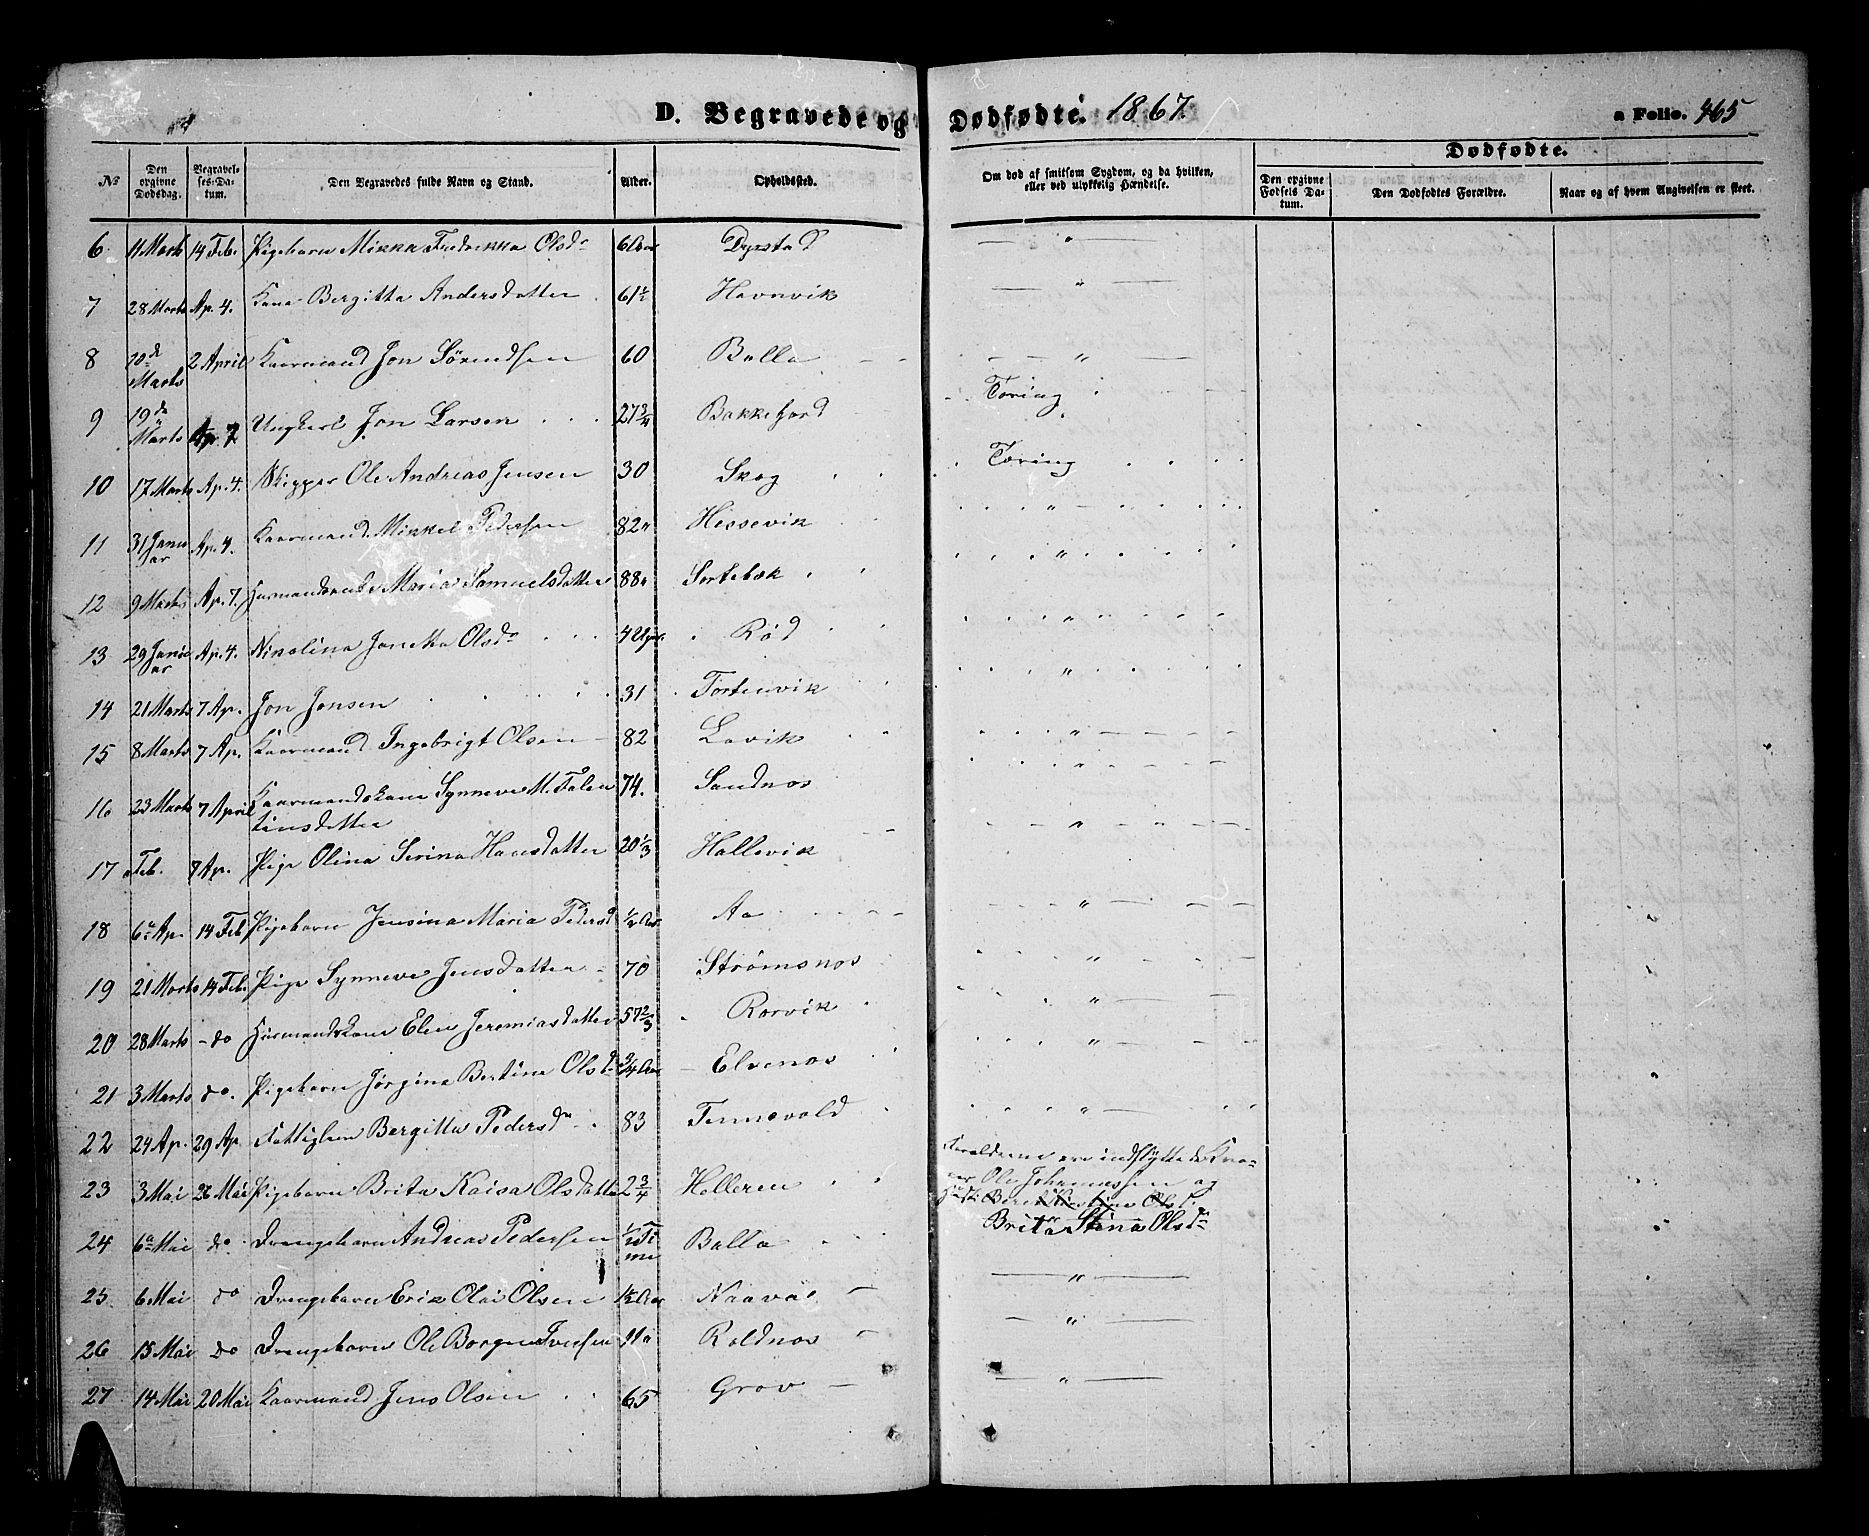 D. Begravede og Dødfødte. 1867. a Folio. 465
No Den opgivne Dødsdag. Begravelses-Datum. Den Begravedes fulde Navn og Stand. Alder. Opholdssted. Om død af smitsom Sygdom, og da hvilken, eller ved ulykkelig Hændelse. Dødfødte.
Den opgivne Fødsels Datum. Den Dødfødtes Forældre. Naar og af hvem Angivelsen er skeet.
6. 11 Marts 14 Feb. Pigebarn Mikka Fredrikka Olsdr 6 Aar Dyrstad — " —
7 28 Marts Ap. 4. Kone Bergitta Andersdatter 61½ Havnvik — " —
8 10de Marts 2 April Kaarmand Jon Sörendsen 60 Balla — " —
9 19de Marts Ap. 7 Ungkarl Jon Larsen 27¾ Bakkejord Tæring
10 17 Marts Ap. 4. Skipper Ole Andreas Jensen 30 Skog Tæring
11 31 Januar Ap. 4. Kaarmand Mikkel Pedersen 82 " Hessevik "
12 9 Marts Ap. 7. Husmandsenke Maria Samuelsdatter 88 " Sortebæk "
13 29 Januar Ap. 4. Nikolina Janetta Olsdr 4 Uger Rød "
14 21 Marts 7 Ap. Jon Jonsen 31 Tortenvik "
15 8 Marts 7 Ap. Kaarmand Ingebrigt Olsen 82 Lavik "
16 23 Marts 7 April Kaarmandskone Synneve M. Falentinsdatter 74. Sandnes
17 Feb. 7 Ap. Pige Olina Serina Hansdatter 20⅓ Hallevik "
18 6te Ap. 14 Feb Pigebarn Jensina Maria Pedersd ½ Aar Aa "
19 21 Marts 14 Feb. Pige Synneve Jensdatter 70 Strømsnes "
20 28 Marts - do Husmandskone Elen Jeremiasdatter 57⅔ Rørvik "
21 3 Marts do. Pigebarn Jørgina Bertina Olsdr ¾ Aar Elvenes "
22 24 Ap. 29 Ap. Fattiglem Bergitta Pedersdr 83 Tennevold "
23 3 Mai 26 Mai Pigebarn Brita Kaisa Olsdatter 2¾ Helleren Foreldrene ere indflyttede Kvæner Ole Johannessen og Brita Stina Olsdr
24 6te Mai do. Drengebarn Andreas Pedersen ½ Time Balla
25 6 Mai do Drengebarn Erik Olai Olsen 1½ Aar — " —
26 15 Mai do Drengebarn Ole Borgen Iversen 11 " Roldnes — " —
27 14 Mai 20 Mai Kaarmand Jens Olsen 65 Grov — " —